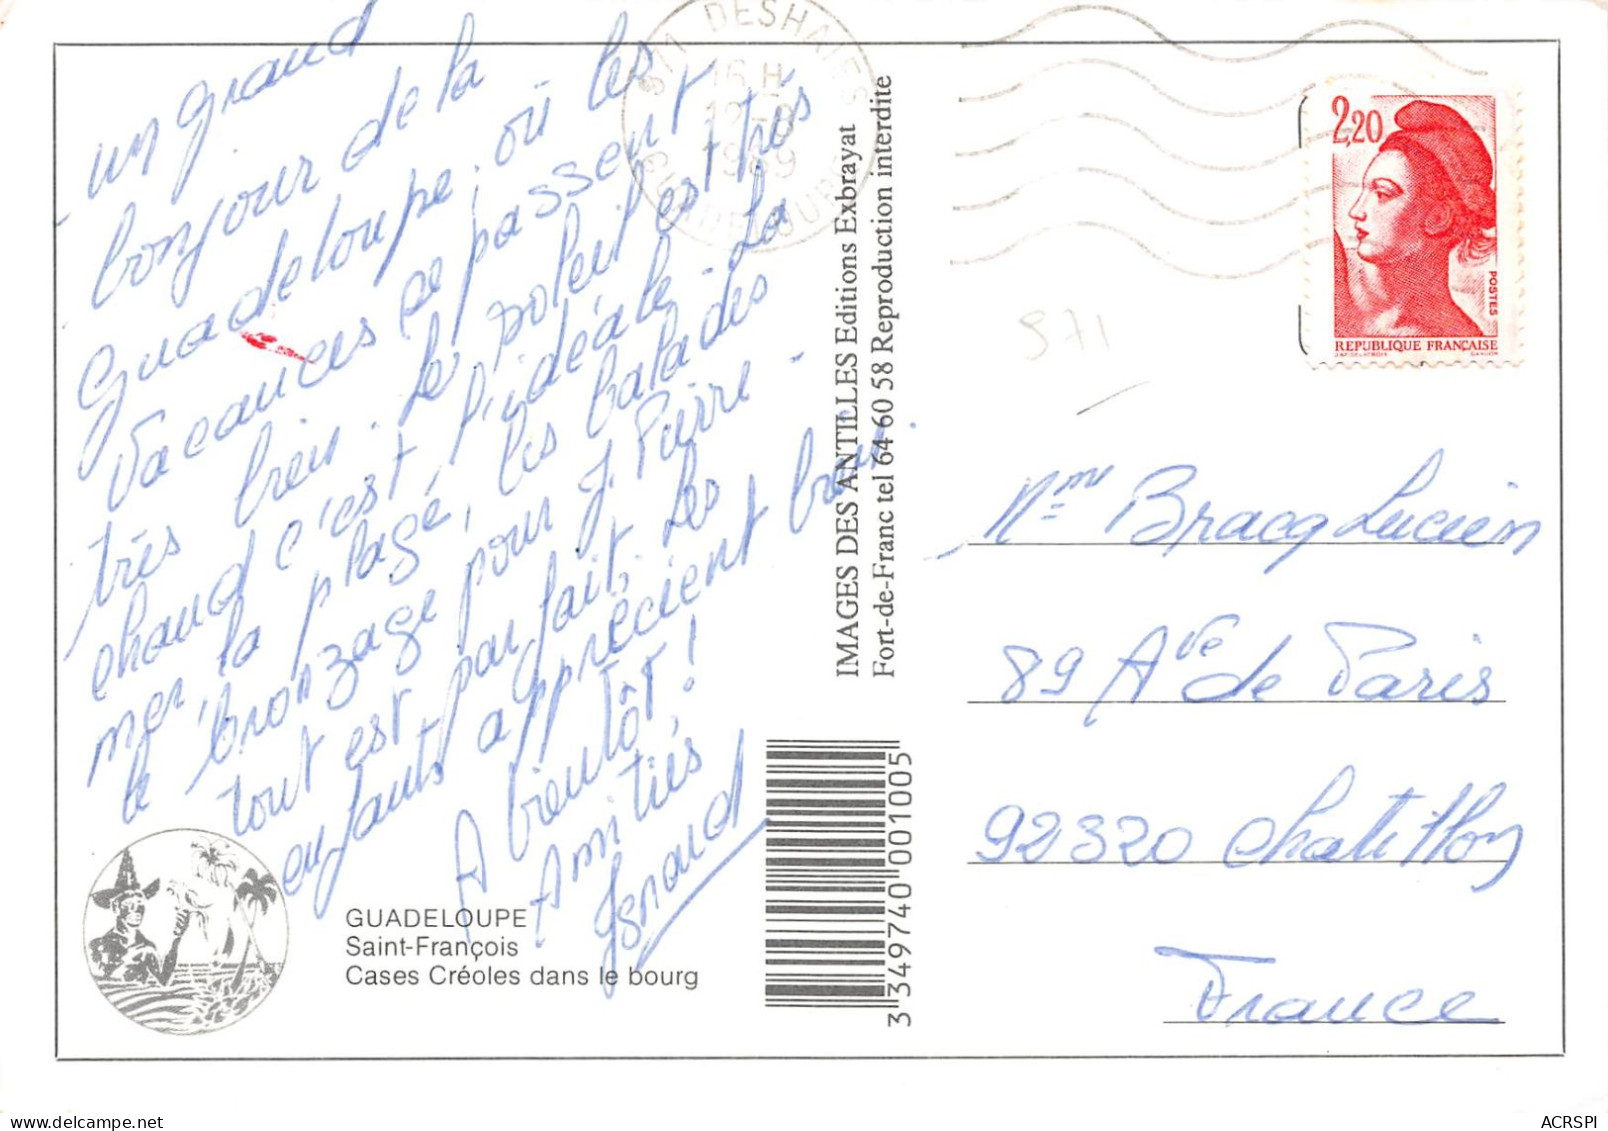 un grand
bonjour de la
Guadeloupe. où les
Vacances se passent
très bien. Le soleil est très
chaud c'est l'idéale - La
mer, la plage, les balades
le bronzage pour J. Pierre -
tout est parfait. Les
enfants apprécient bien.
A bientôt!
Amitiés
DESHAIES
16 H
12-8
1989
GUADELOUPE
IMAGES DES ANTILLES Editions Exbrayat
Fort-de-Franc tel 64 60 58 Reproduction interdite
2,20
POSTES
REPUBLIQUE FRANÇAISE
971
Mme Bracq Lucien
89 Ave de Paris
92320 Chatillon
France
GUADELOUPE
Saint-François
Cases Créoles dans le bourg
3 349740 001005
ACRSPI